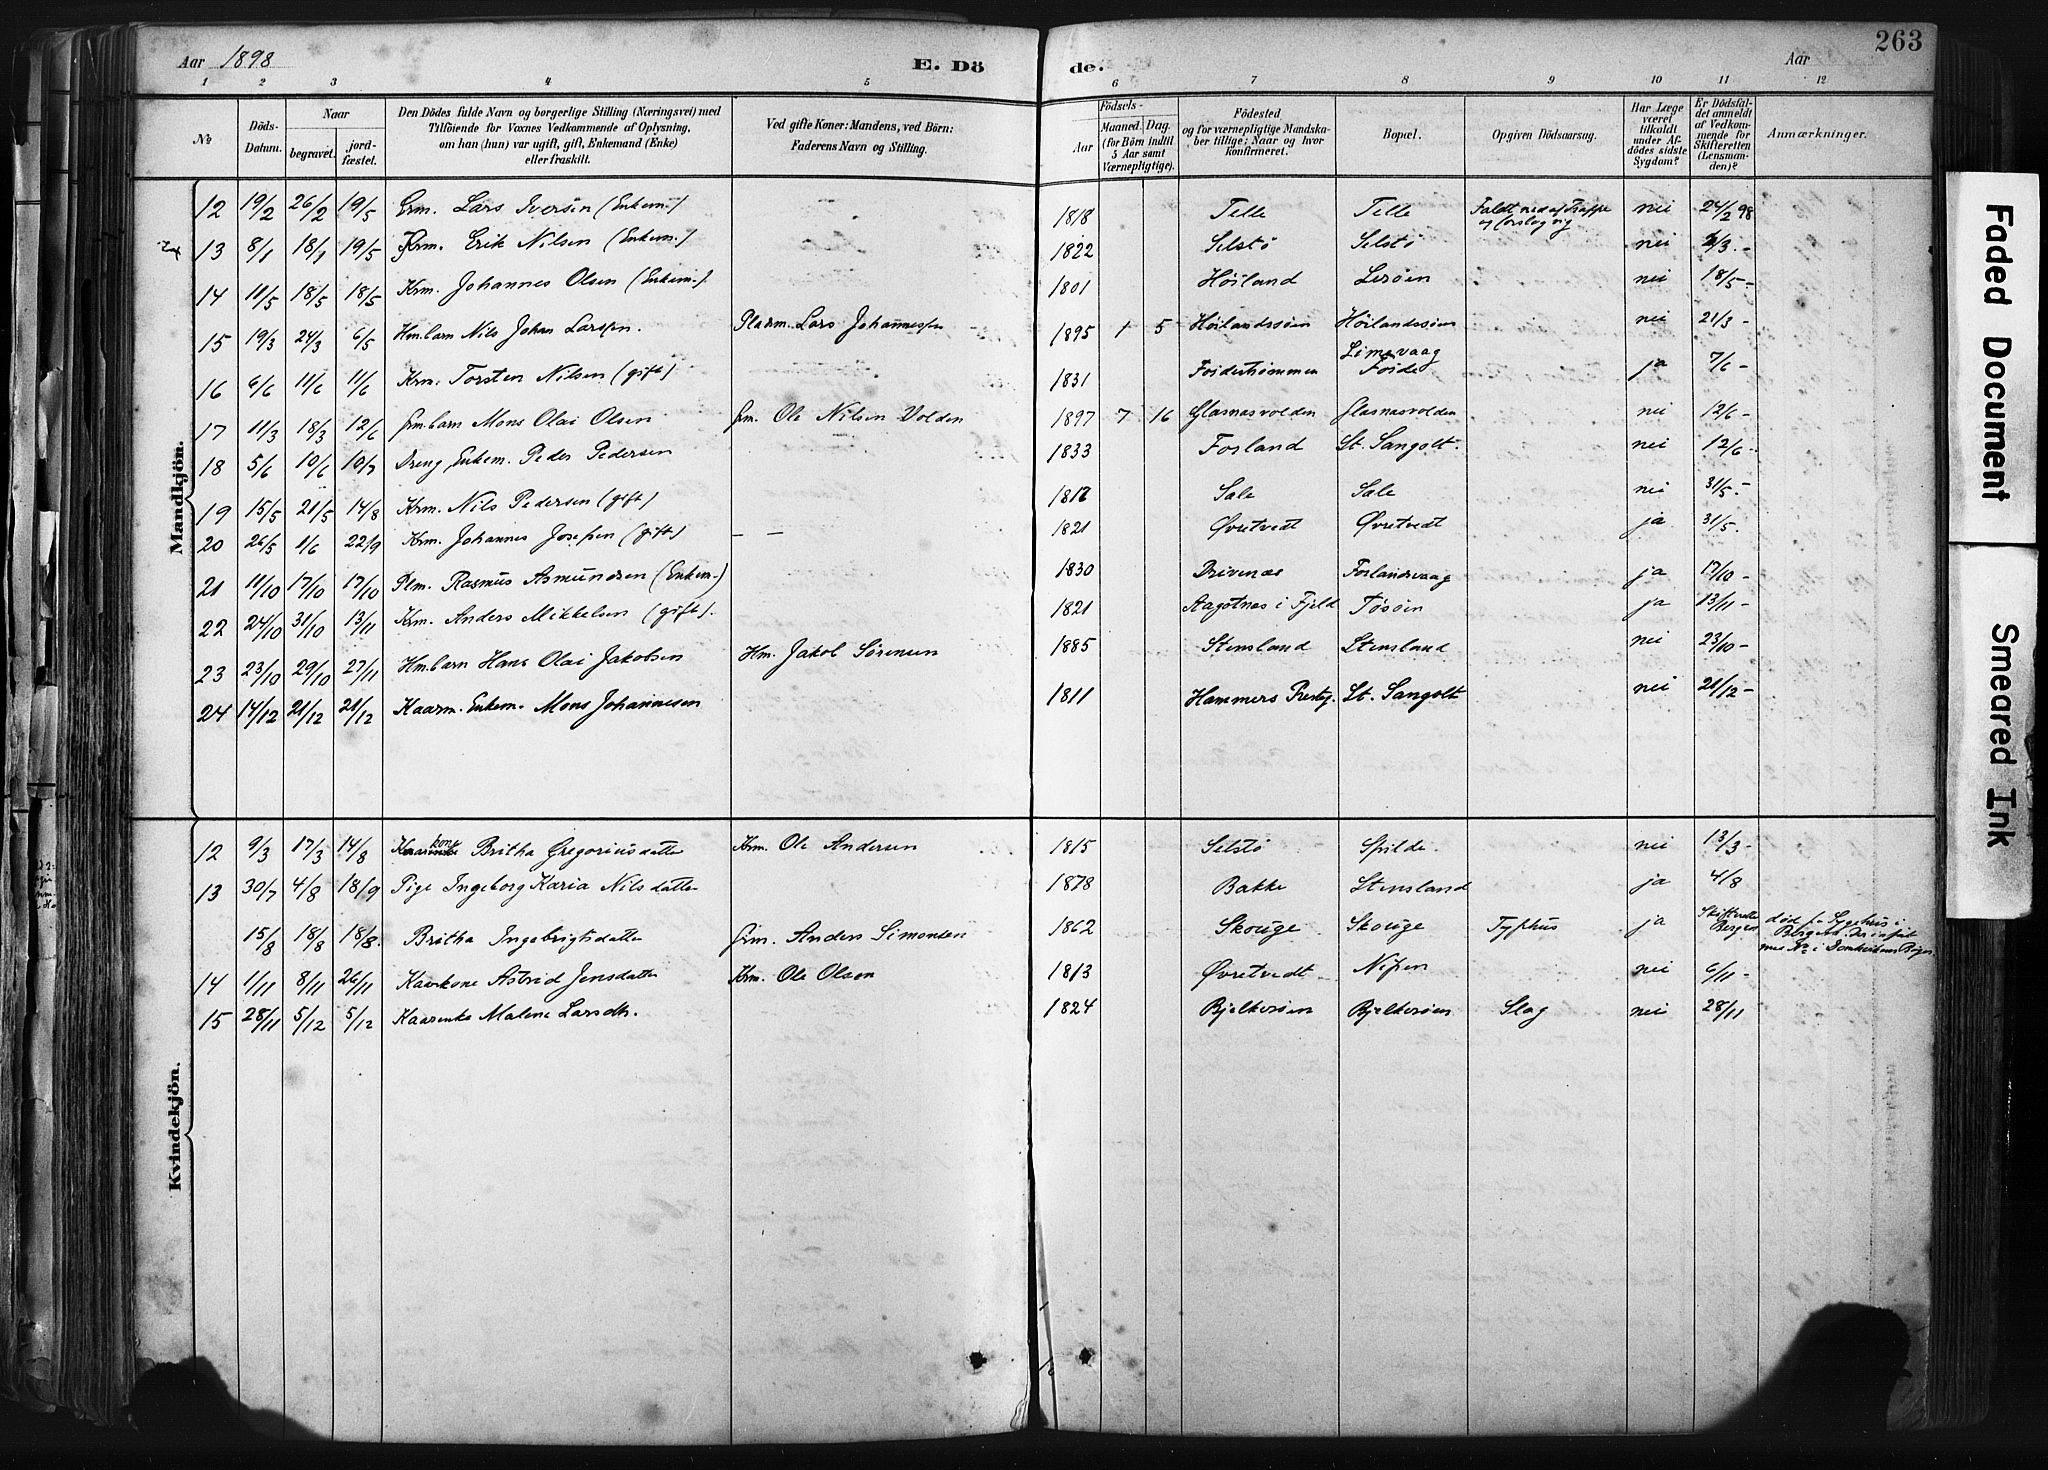 263
Aar 1898
E. Dö
de.
Aar
1 2 3 4 5 6 7 8 9 10 11 12
№
Döds-
Datum.
Naar
begravet.
jord-
fæstet.
Den Dödes fulde Navn og borgerlige Stilling (Næringsvei) med
Tilföiende for Voxnes Vedkommende af Oplysning,
om han (hun) var ugift, gift, Enkemand (Enke)
eller fraskilt.
Ved gifte Koner: Mandens, ved Börn:
Faderens Navn og Stilling.
Födsels-
Aar
Maaned. Dag.
(for Börn indtil
5 Aar samt
Værnepligtige).
Födested
og for værnepligtige Mandska-
ber tillige: Naar og hvor
konfirmeret.
Bopæl.
Opgiven Dödsaarsag.
Har Læge
været
tilkaldt
under Af-
dödes sidste
Sygdom?
Er Dödsfal-
det anmeldt
af Vedkom-
mende for
Skifteretten
(Lensman-
den)?
Anmærkninger.
Mandkjön.
12 19/2 26/2 19/5 Grm. Lars Iversen (Enkem.) 1818 Telle Telle Faldt ned af Trappe og forslog sig nei 24/2 98
13 8/1 18/1 19/5 Krm. Erik Nilsen (Enkem.) 1822 Selstø Selstø nei /3 -
14 11/5 18/5 18/5 Krm. Johannes Olsen (Enkem.) 1801 Høiland Lerøen nei 18/5 -
15 19/3 24/3 6/5 Hm.barn Nils Johan Larssen. Pladsm. Lars Johannessen 1895 1 5 Høilandssøen Høilandssøen nei 21/3 -
16 6/6 11/6 11/6 Krm. Torsten Nilsen (gift) 1831 Foidestrømmen Limevaag Foide ja 7/6 -
17 11/3 18/3 12/6 Grm.barn Mons Olai Olsen Grm. Ole Nilsen Volden 1897 7 16 Glasnasvolden Glasnasvolden nei 12/6 -
18 5/6 10/6 10/7 Dreng, Enkem. Peder Pedersen 1833 Forland St. Sangolt. nei 12/6 -
19 15/5 21/5 14/8 Krm. Nils Pedersen (gift) 1817 Sale Sale nei 31/5 -
20 26/5 1/6 22/9 Krm. Johannes Josefsen (gift) — — 1821 Øvretvedt Øvretvedt ja 31/5.
21 11/10 17/10 17/10 Plm. Rasmus Asmundsen (Enkem.) 1830 Drivenes Forlandsvaag ja 17/10 -
22 24/10 31/10 13/11 Krm. Anders Mikkelsen (gift). 1821 Aagotnas i Fjeld Tøsøen ja 13/11 -
23 23/10 29/10 27/11 Hm.barn Hans Olai Jakobsen Hm. Jakob Sørensen 1885 Stensland Stensland nei 23/10 -
24 14/12 21/12 21/12 Kaarm. Enkem. Mons Johannesen 1811 Hammers Prestg. St. Sangolt nei 21/12 -
Kvindekjön.
12 9/3 17/3 14/8 Kaarkone Britha Gregoriusdatter Krm. Ole Andersen 1815 Selstø Spilde nei 13/3 -
13 30/7 4/8 18/9 Pige Ingeborg Karia Nilsdatter 1878 Bakke Stensland ja 4/8
15/8 18/8 18/8. Britha Ingebrigtsdatter Grm. Anders Simonsen 1862 Skouge Skouge Typhus ja Skifteretten Bergen død på Sygehus i Bergen. Der inført med № i Domkirkens Bøger
14 1/11 8/11 26/11 Kaarkone Astrid Jensdatter Krm. Ole Olsen 1813 Øvretvedt Nipen nei 6/11 -
15 28/11 5/12 5/12 Kaarenke Malene Larsdtr. 1824 Bjelkerøen Bjelkerøen Slag nei 28/11
Faded Document
Smeared Ink